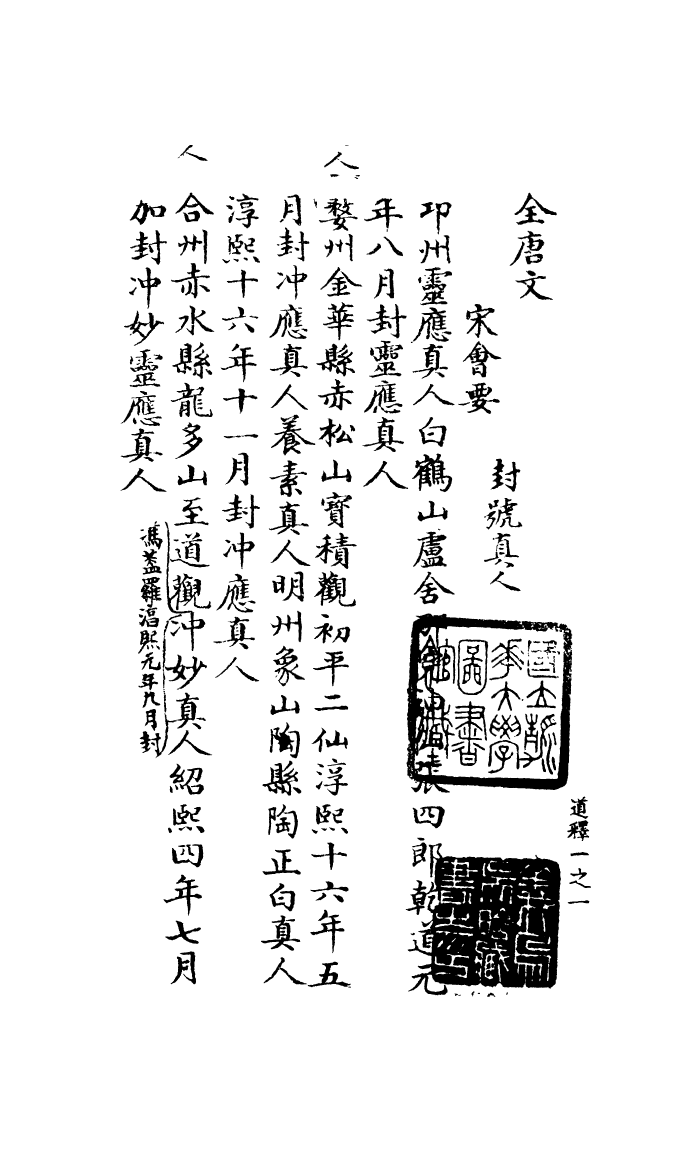 全唐文
宋會要
封號真人
卭州靈應真人白鶴山盧舍
張四郎乾道元
年八月封靈應真人
婺州金華縣赤松山寶積觀初平二仙淳熙十六年五
月封冲應真人養素真人明州象山陶縣陶正白真人
淳熙十六年十一月封冲應真人
合州赤水縣龍多山至道觀冲妙真人紹熙四年七月
馮蓋羅淳熙元年九月封
加封冲妙靈應真人
人
人
道釋一之一
國立清華大學圖書館藏